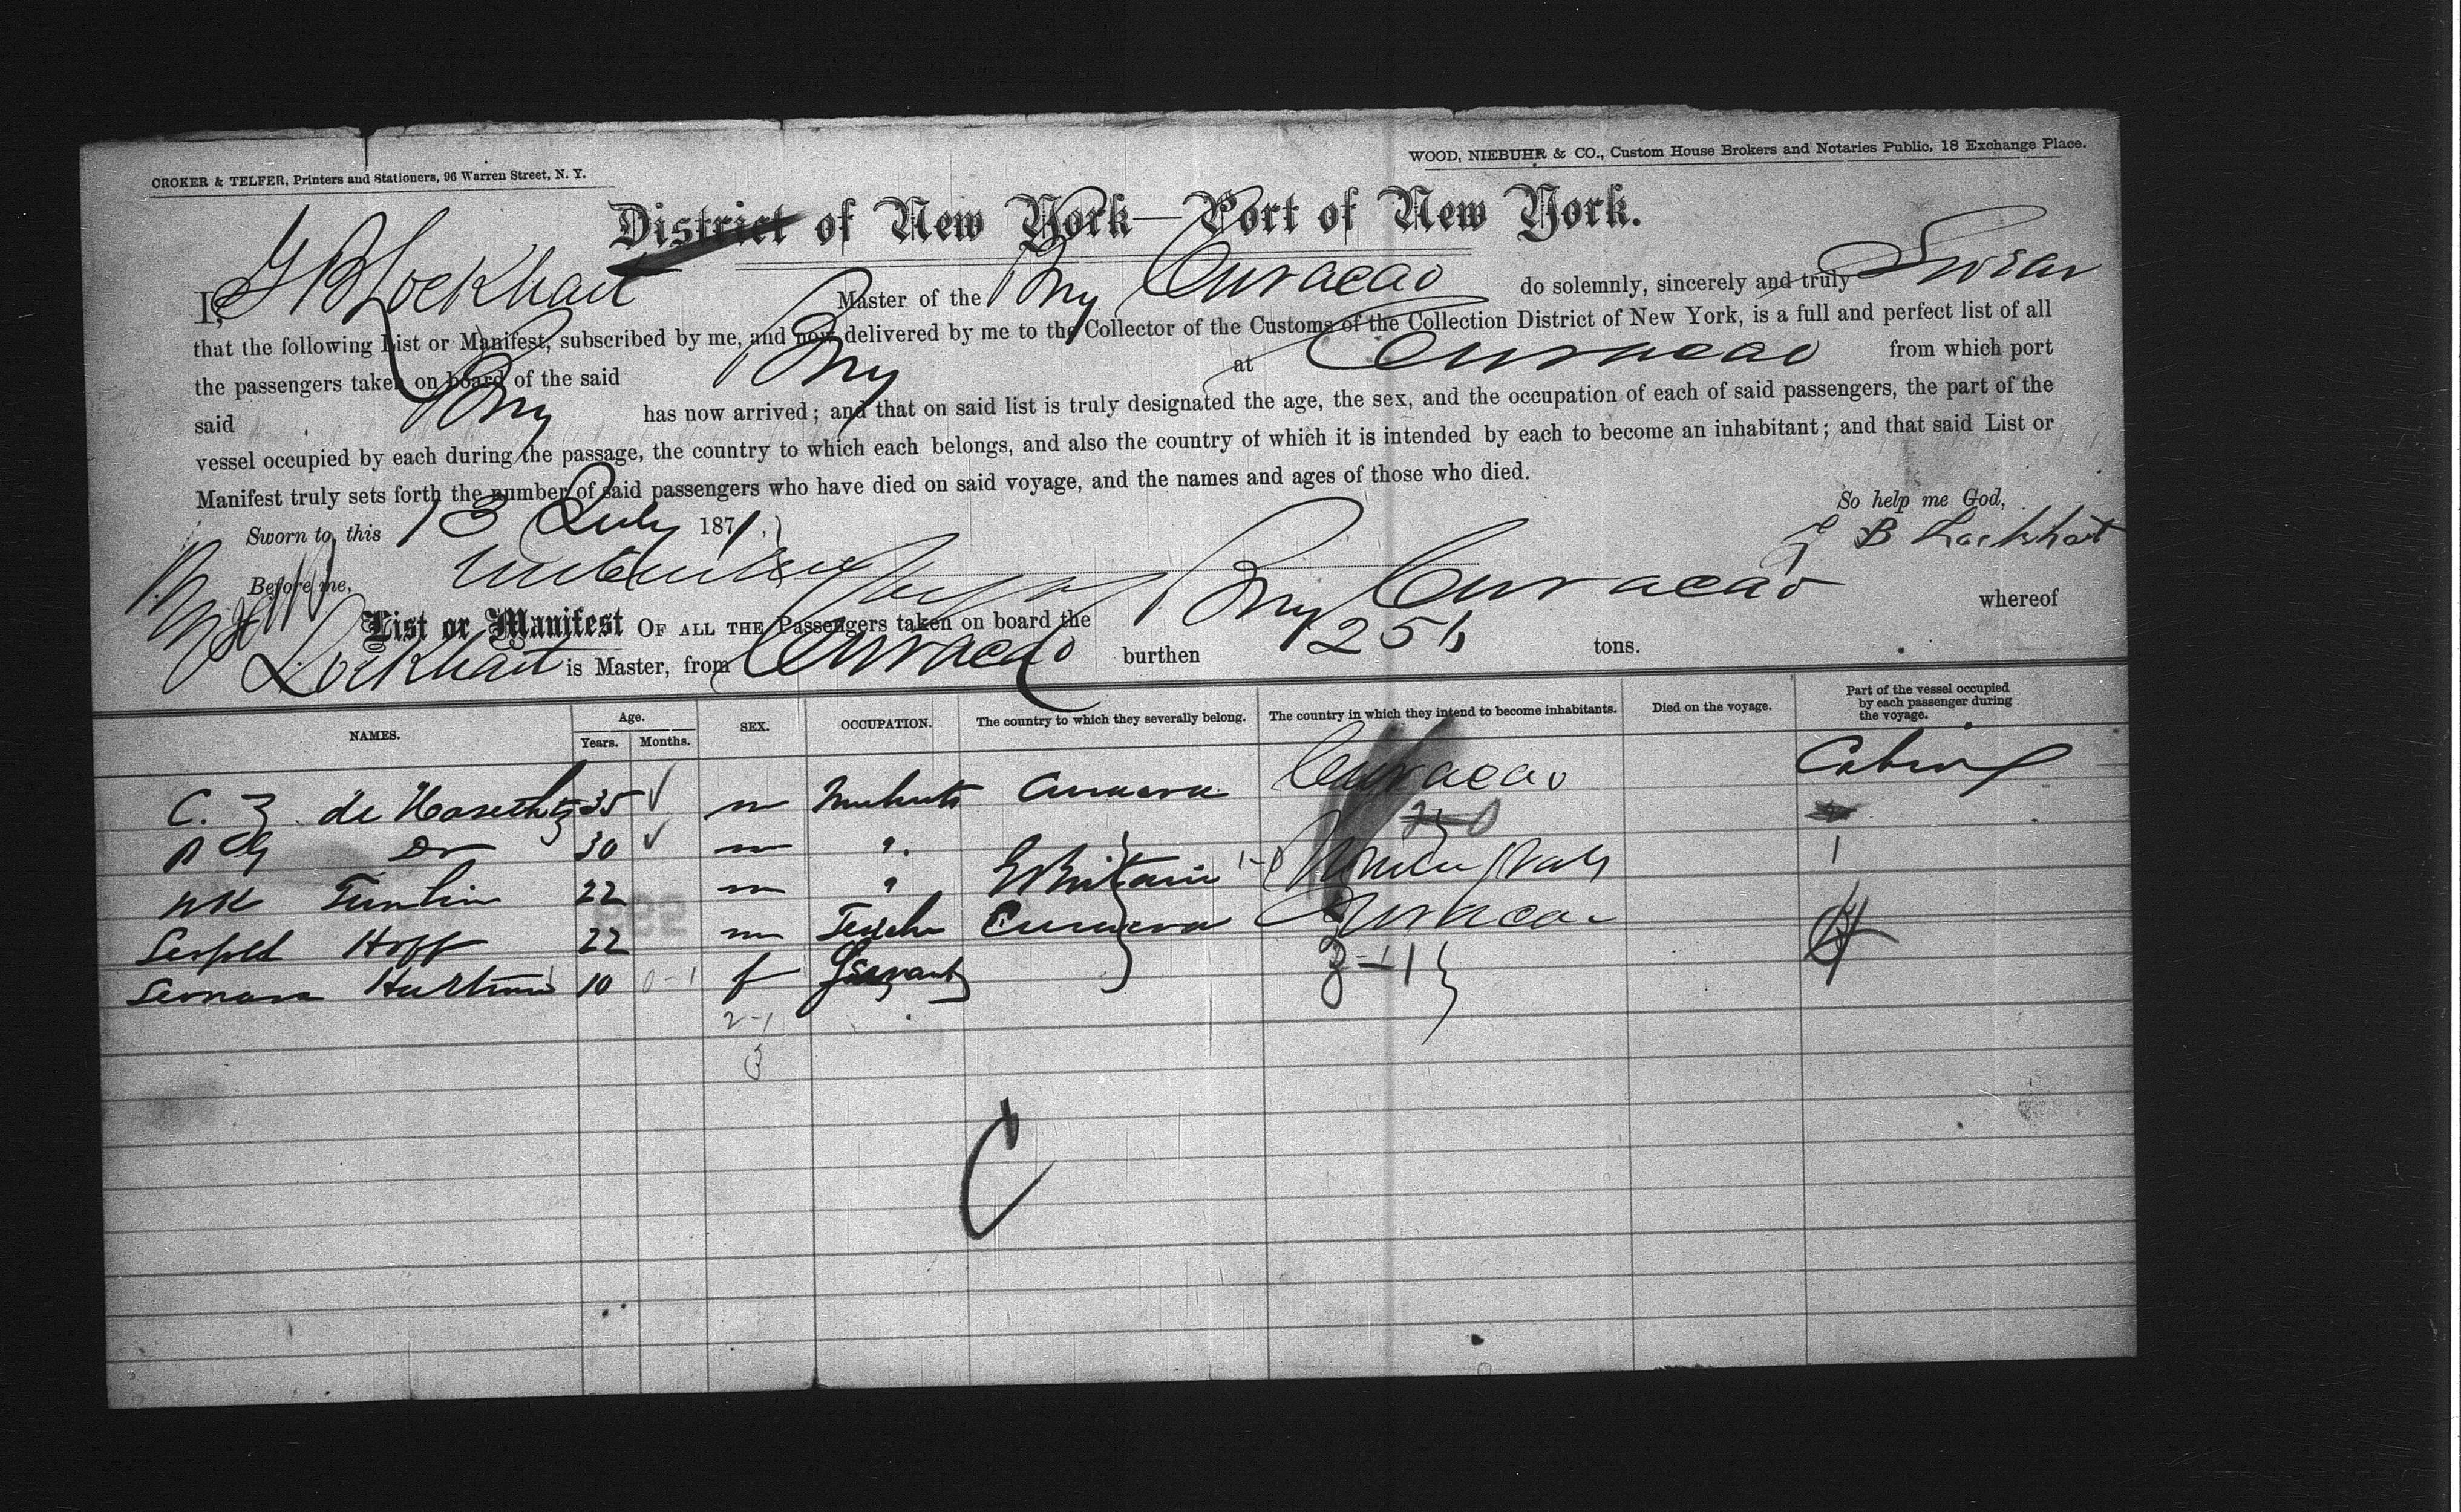 CROKER & TELFER, Printers and Stationers, 96 Warren Street, N. Y.
WOOD, NIEBUHR & CO., Custom House Brokers and Notaries Public, 18 Exchange Place.
District of New York—Port of New York.
I, G B Lockhart Master of the Brig Curacao do solemnly, sincerely and truly Swear
that the following List or Manifest, subscribed by me, and now delivered by me to the Collector of the Customs of the Collection District of New York, is a full and perfect list of all
the passengers taken on board of the said Brig at Curacao from which port
said Brig has now arrived; and that on said list is truly designated the age, the sex, and the occupation of each of said passengers, the part of the
vessel occupied by each during the passage, the country to which each belongs, and also the country of which it is intended by each to become an inhabitant; and that said List or
Manifest truly sets forth the number of said passengers who have died on said voyage, and the names and ages of those who died.
So help me God,
Sworn to, this 13 July 1871.
B Lockhart
Before me,
List or Manifest OF ALL THE Passengers taken on board the Brig Curacao whereof
Lockhart is Master, from Curacao burthen 256 tons.
NAMES. Age. Years. Months. SEX. OCCUPATION. The country to which they severally belong. The country in which they intend to become inhabitants. Died on the voyage. Part of the vessel occupied by each passenger during the voyage.
C. de 35 m Curacoa Curacao Cabin
Do 30 m " 1
22 m " Britain
Leopold Hoff 22 m Curacoa Curacao
10 0-1 f Servant
2-1
3
C